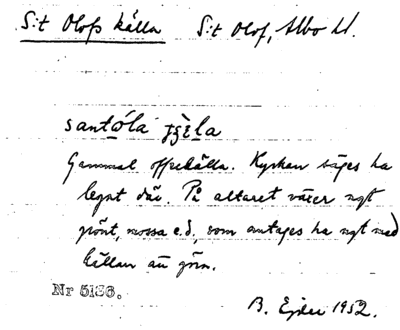 S:t Olofs källa   S:t Olof, Albo hd.
santóla ɟɕɛ̀la
Gammal offerkälla. Kyrkan säges ha
legat där. På altaret växer ngt
grönt, mossa e.d., som antages ha ngt med
källan att göra.
Nr 5136.
B. Ejder 1952.